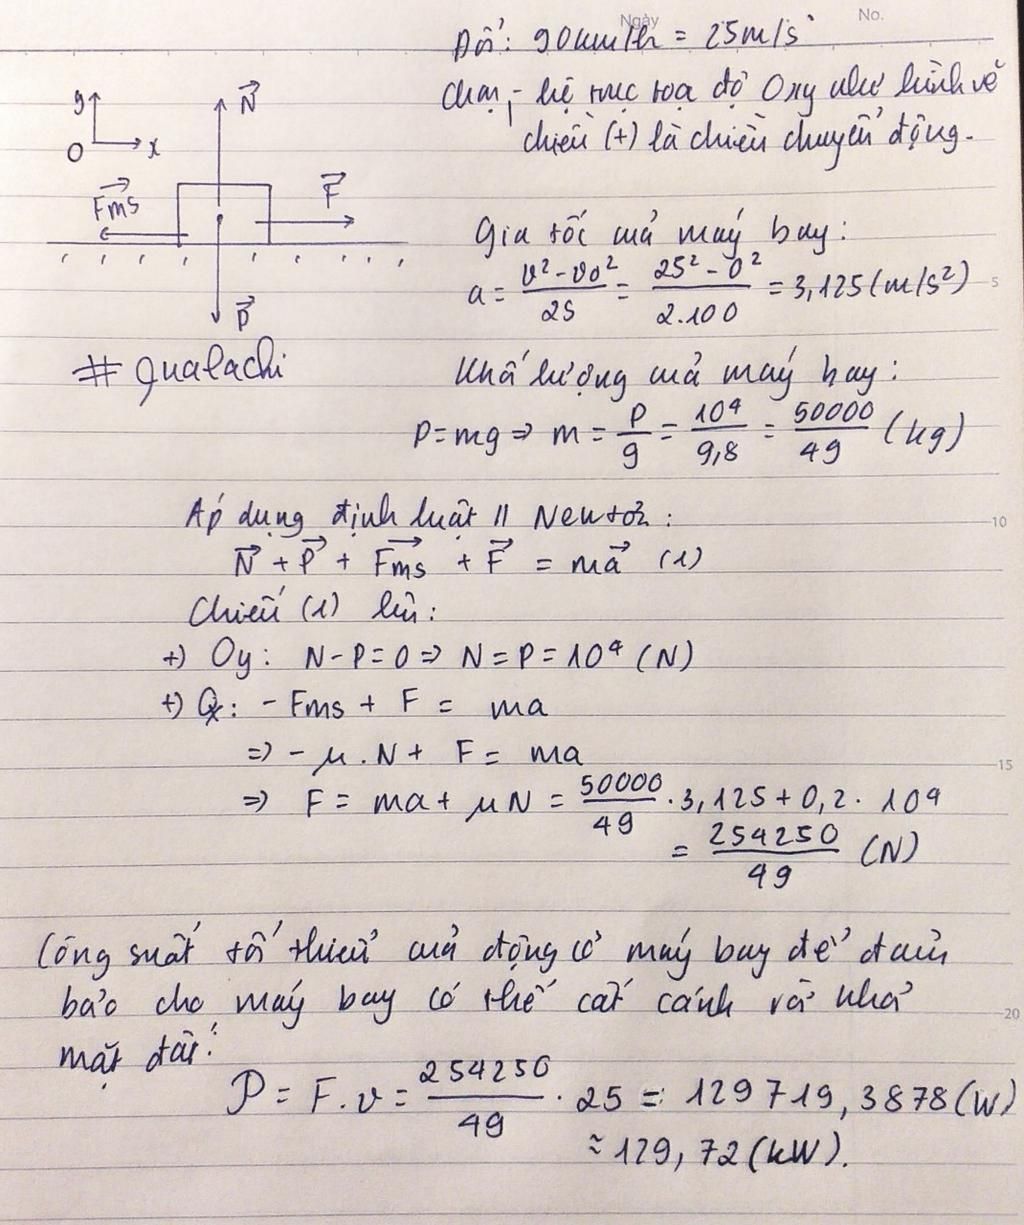 Ngày
No.
Đổi: 90km/h = 25m/s
Chọn hệ trục tọa độ Oxy như hình vẽ
chiều (+) là chiều chuyển động.
y
O
x
N
Fms
F
P
Gia tốc của máy bay:
a = (v² - v₀²)/(2S) = (25² - 0²)/(2.100) = 3,125 (m/s²)
5
# qualachi
Khối lượng của máy bay:
P = mg ⇒ m = P/g = 10⁴/9,8 = 50000/49 (kg)
Áp dụng định luật II Newton:
10
N + P + Fms + F = ma (1)
Chiếu (1) lên:
+) Oy: N - P = 0 ⇒ N = P = 10⁴ (N)
+) Ox: - Fms + F = ma
⇒ - μ.N + F = ma
15
⇒ F = ma + μN = 50000/49 . 3,125 + 0,2 . 10⁴
= 254250/49 (N)
Công suất tối thiểu của động cơ máy bay để đảm
bảo cho máy bay có thể cất cánh rời khỏi
20
mặt đất:
P = F.v = 254250/49 . 25 = 129719,3878 (W)
≈ 129,72 (kW).